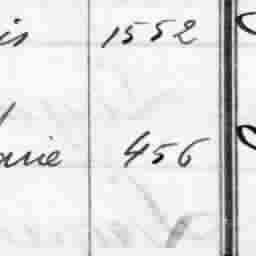 is 1552
arie 456